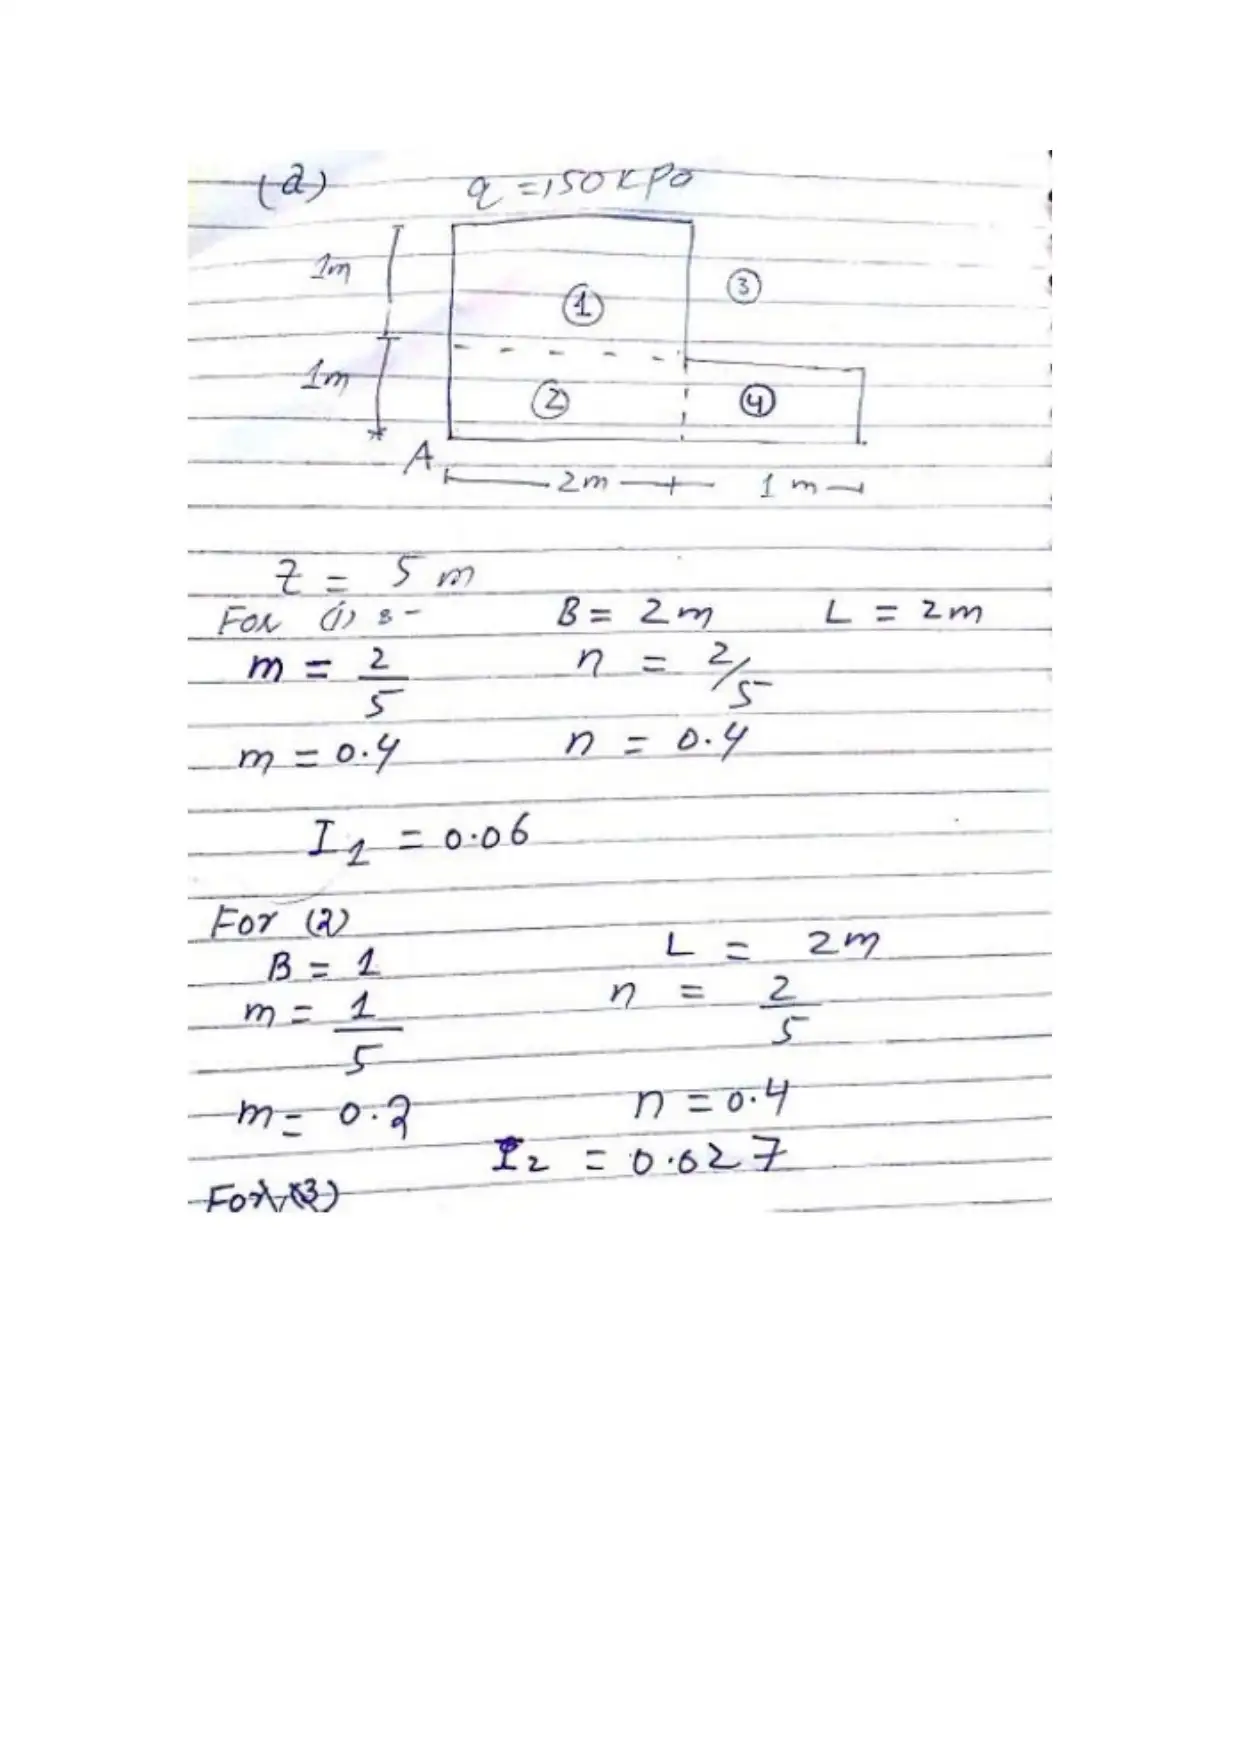 (a) q = 150 kPa
1m
① ③
1m
② ④
A
2m 1 m
Z = 5 m
For (1) :- B = 2 m L = 2 m
m = 2/5 n = 2/5
m = 0.4 n = 0.4
I₁ = 0.06
For (2)
B = 1 L = 2m
m = 1/5 n = 2/5
m = 0.2 n = 0.4
I₂ = 0.027
For (3)